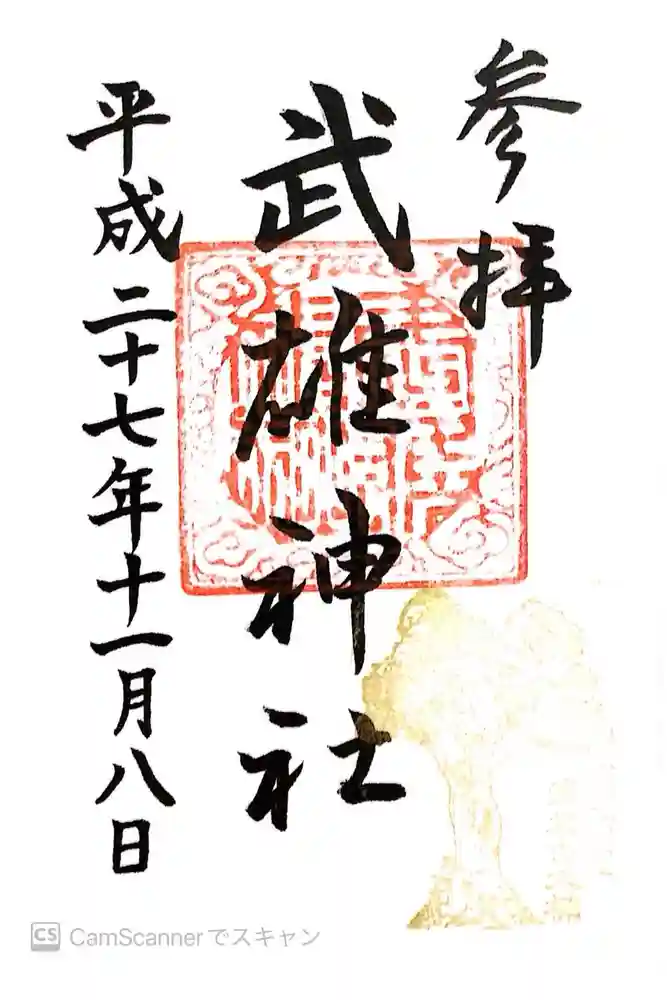 参拝
武雄神社
平成二十七年十一月八日
CS CamScannerでスキャン